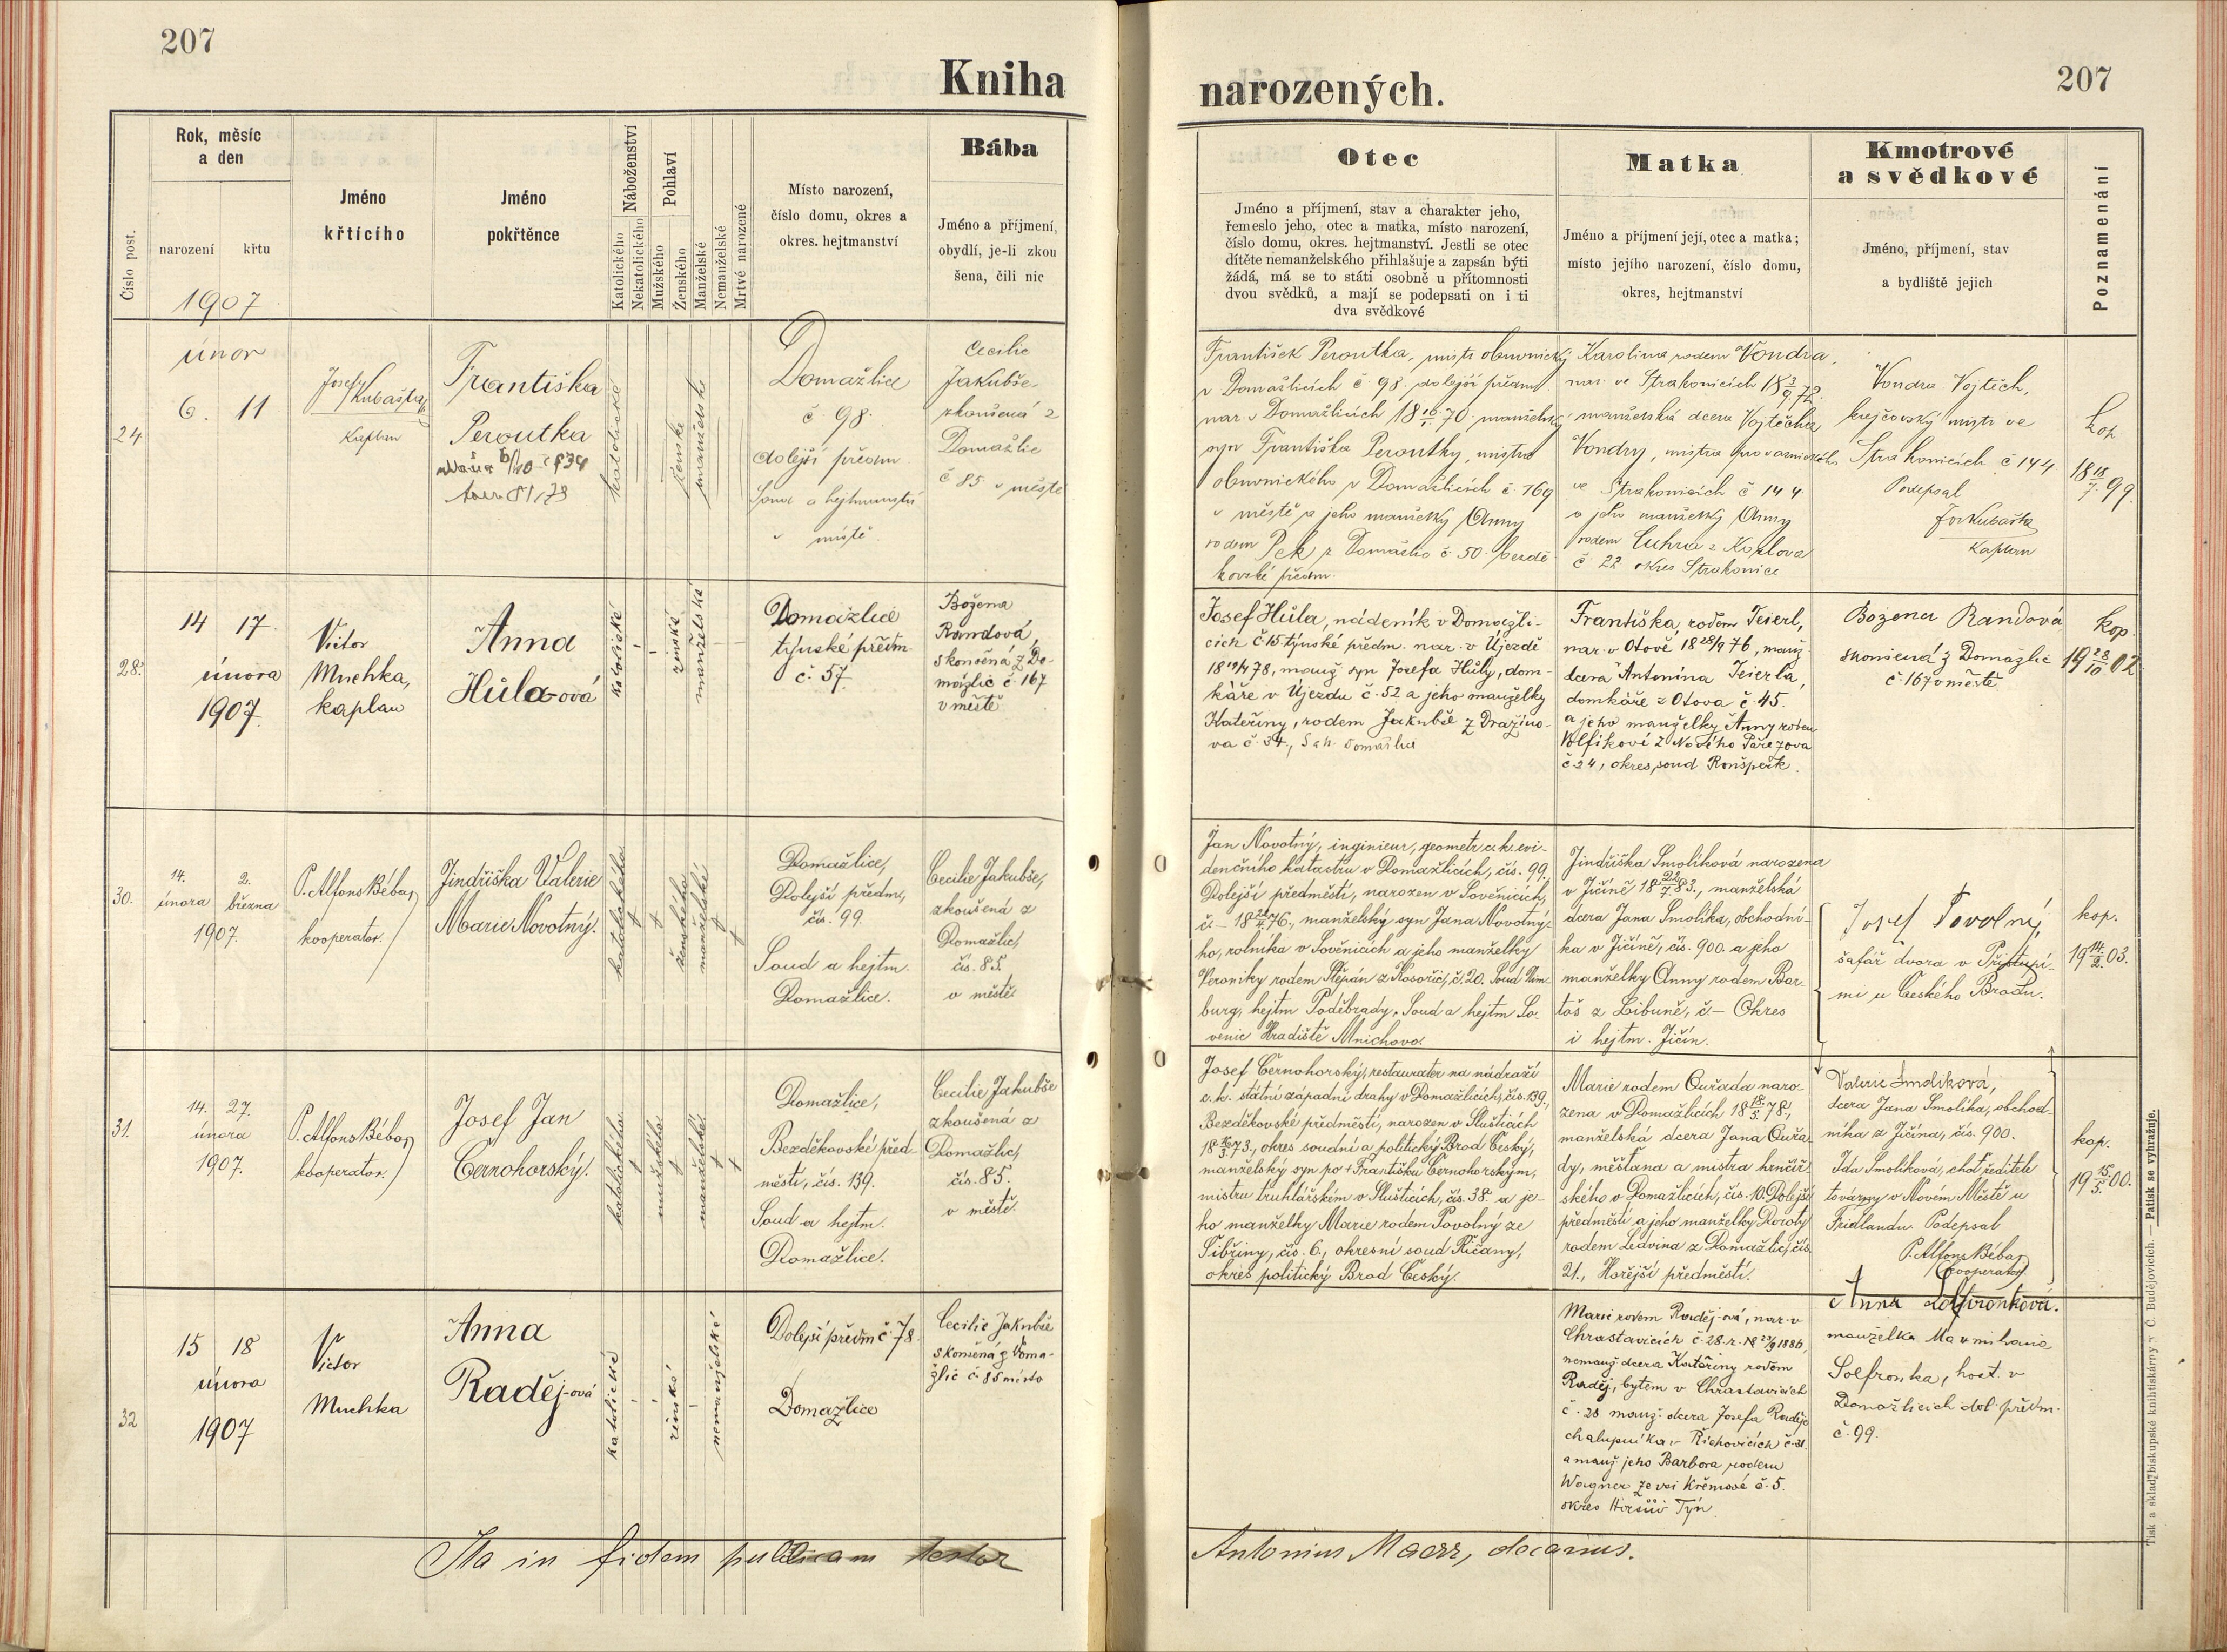 207
207
Kniha
narozených.
Číslo post.
Rok, měsíc
a den
narození
křtu
1907
Jméno
křtícího
Jméno
pokřtěnce
Náboženství
Katolického
Nekatolického
Pohlaví
Mužského
Ženského
Manželské
Nemanželské
Mrtvé narozené
Místo narození,
číslo domu, okres a
okres. hejtmanství
Bába
Jméno a příjmení,
obydlí, je-li zkou
šena, čili nic
Otec
Jméno a příjmení, stav a charakter jeho,
řemeslo jeho, otec a matka, místo narození,
číslo domu, okres. hejtmanství. Jestli se otec
dítěte nemanželského přihlašuje a zapsán býti
žádá, má se to státi osobně u přítomnosti
dvou svědků, a mají se podepsati on i ti
dva svědkové
Matka
Jméno a příjmení její, otec a matka;
místo jejího narození, číslo domu,
okres, hejtmanství
Kmotrové
a svědkové
Jméno, příjmení, stav
a bydliště jejich
Poznamenání
24
únor
6. 11
Josef
Kubaštag
Kaplan
Františka
Peroutka
katolické
ženské
manželské
Domažlice
č 98.
dolejší předm
Soud a hejtmanství
v místě.
Cecilie
Jakubše
zkoušená z
Domažlic
č 85 v městě
František Peroutka, mistr obuvnický
v Domažlicích č 98. dolejší předm.
nar. v Domažlicích 18 70. manželský
syn Františka Peroutky, mistra
obuvnického v Domažlicích č. 169
v městě a jeho manželky Anny
rodem Pek z Domažlic č. 50. bezdě-
kovské předm.
Karolina rodem Vondra,
nar. ve Strakonicích 18 3/9 72.
manželská dcera Vojtěcha
Vondry, mistra provaznického
ve Strakonicích č 144.
a jeho manželky Anny
rodem Cuhra z Kozlova
č 22 okres Strakonice
Vondra Vojtěch,
krejčovský mistr ve
Strakonicích č 144
Podepsal
Jos Kubašta
Kaplan
kop
18 18/7 99.
28.
14 17.
února
1907.
Victor
Muchka,
kaplan
Anna
Hůla-ová
katolické
ženské
manželská
Domažlice
týnské předm.
č. 57.
Božena
Randová,
skoušená z Do-
mažlic č. 167
v městě
Josef Hůla, nádeník v Domažli-
cích č. 15 týnské předm. nar. v Újezdě
18 19/4 78, manž. syn Josefa Hůly, dom-
káře v Újezdu č. 52 a jeho manželky
Kateřiny, rodem Jakubše z Dražino-
va č. 34., S a h. Domažlice
Františka rodem Teierl,
nar. v Otově 18 28/9 76, manž.
dcera Antonína Teierla,
domkáře z Otova č. 45.
a jeho manželky Anny rodem
Volfíkové z Nového Pařezova
č. 24, okres, soud Ronšperk.
Božena Randová
skoušená z Domažlic
č. 167 v městě
kop.
19 28/10 02
30.
14. 2.
února března
1907.
P. Alfons Bébar,
kooperator.
Jindřiška Valerie
Marie Novotný.
katolického
ženského
manželské
Domažlice,
Dolejší předm.,
čís. 99.
Soud a hejtm.
Domažlice.
Cecilie Jakubše,
zkoušená z
Domažlic,
čís. 85.
v městě.
Jan Novotný, inginieur, geometr c. k. evi-
denčního katastru v Domažlicích, čís. 99.,
Dolejší předměstí, narozen v Sověnicích,
č. – 18 76., manželský syn Jana Novotný-
ho, rolníka v Sověnicích a jeho manželky
Veroniky rodem Štěpán z Kosořic, č. 20. Soud Nim-
burg, hejtm Poděbrady. Soud a hejtm So-
venic Hradiště Mnichovo.
Jindřiška Smolíková narozena
v Jičíně 18 22/7 83., manželská
dcera Jana Smolíka, obchodní-
ka v Jičíně, čís. 900. a jeho
manželky Anny rodem Bar-
toš z Libuně, č. – Okres
i hejtm. Jičín.
Josef Povolný,
šafář dvora v Přistupi-
mi u Českého Brodu.
kop.
19 14/2. 03.
31.
14. 27.
února
1907.
P. Alfons Bébar,
kooperator.
Josef Jan
Černohorský.
katolického
mužského
manželské
Domažlice,
Bezděkovské před-
městí, čís. 139.
Soud a hejtm.
Domažlice.
Cecilie Jakubše
zkoušená z
Domažlic,
čís. 85.
v městě.
Josef Černohorský, restaurater na nádraží
c. k. státní západní dráhy v Domažlicích, čís. 139.,
Bezděkovské předměstí, narozen v Sluštiách
18 73., okres soudní a politický Brod Český,
manželský syn po + Františku Černohorským,
mistru truhlářském v Sluštiích, čís. 38. a je-
ho manželky Marie rodem Povolný ze
Sibřiny, čís. 6., okresní soud Říčany,
okres politický Brod Český.
Marie rodem Ouřada naro-
zena v Domažlicích 18 18/5 78.,
manželská dcera Jana Ouřa-
dy, měšťana a mistra hrnčíř-
ského v Domažlicích, čís. 10. Dolejší
předměstí a jeho manželky Doroty
rodem Ledvina z Domažlic, čís.
21., Hořejší předměstí.
Valerie Smolíková,
dcera Jana Smolíka, obchod-
níka z Jičína, čís. 900.
Ida Smolíková, choť ředitele
továrny v Novém Městě u
Fridlandu. Podepsal
P. Alfons Bébar,
kooperator.
kop.
19 15/5. 00.
32
15 18
února
1907
Victor
Muchka
Anna
Raděj-ová
katolické
ženské
nemanželské
Dolejší předm č. 78.
Domažlice
Cecilie Jakubše
skoušená z Doma-
žlic č. 85 město
Marie rodem Raděj-ová, nar. v
Chrastavicích č. 28. r. 23/9 1886,
nemanž. dcera Kateřiny rodem
Raděj, bytem v Chrastavicích
č. 28 manž. dcera Josefa Raděje
chalupníka, Říchovicích č. 31.
a manž. jeho Barbora rodem
Wagner ze vsi Křenové č. 5.
okres Horšův Týn.
Anna
manželka
Solfronka, host. v
Domažlicích dol. předm.
č. 99.
Ita in fidem publicam testor
Antonius Maerz, decanus.
Tisk a sklad biskupské knihtiskárny v Č. Budějovicích. — Patisk se vyhražuje.